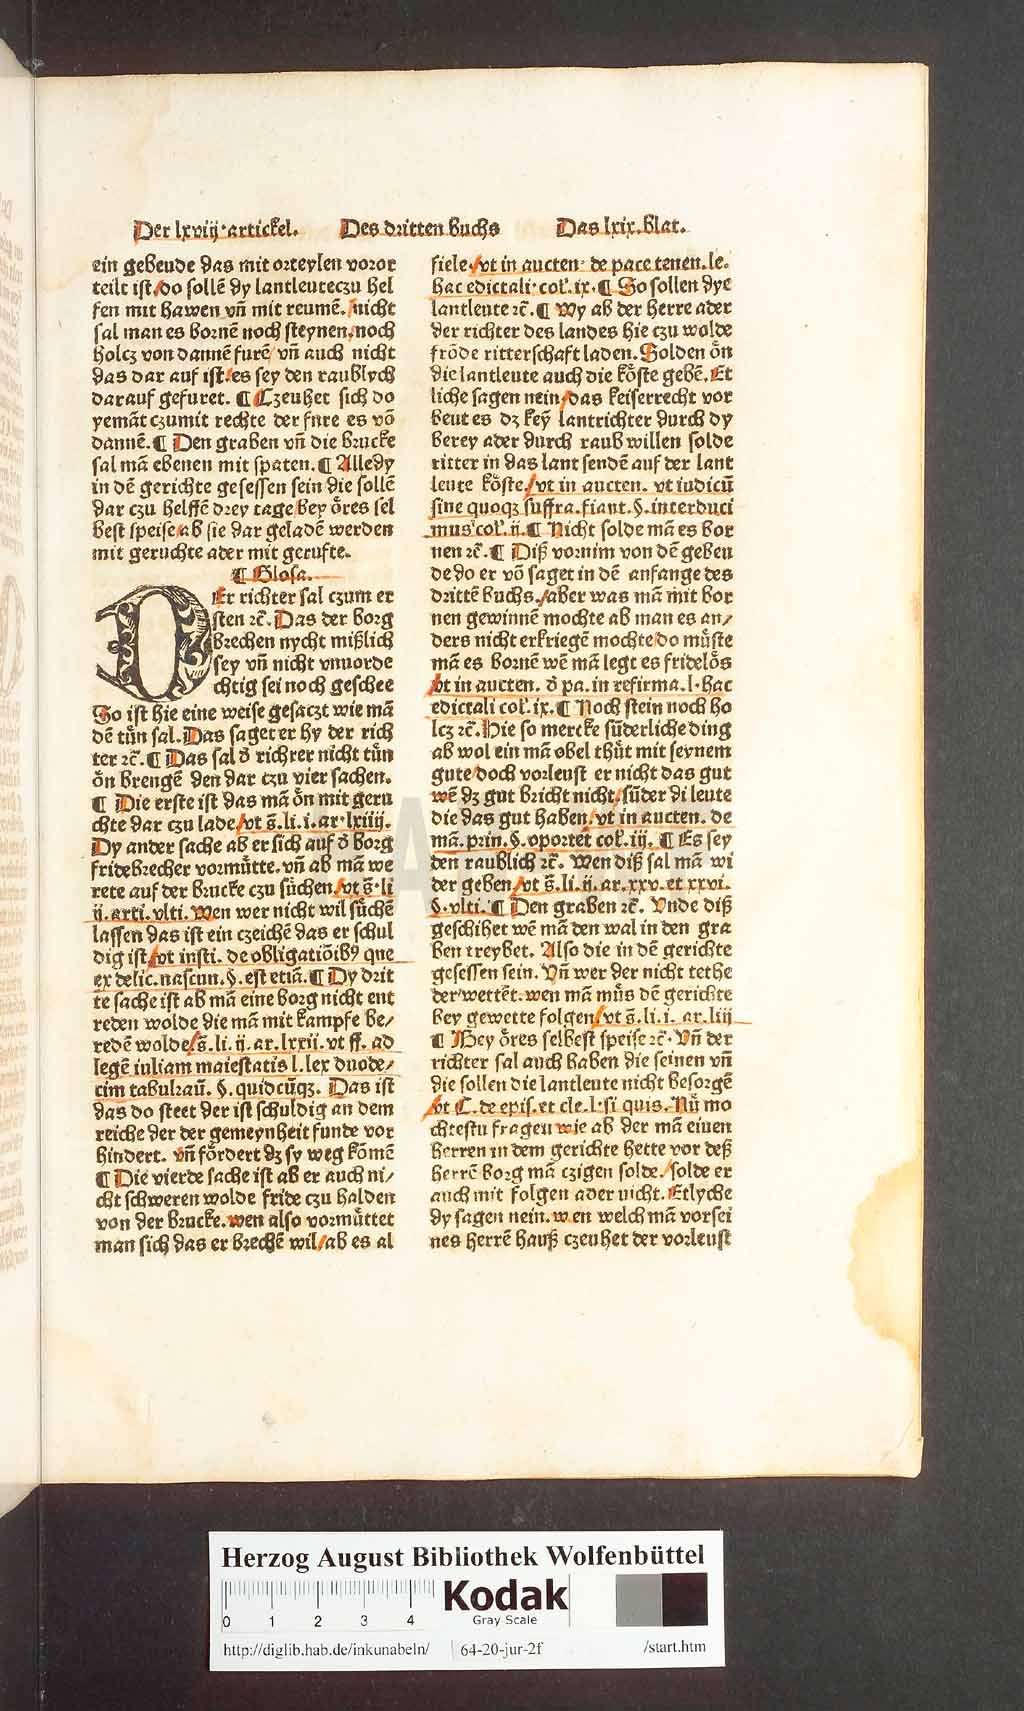 Der lxviij·artickel. Des dritten buchs Das lxix.blat.
ein gebeude das mit orteylen voror
teilt ist/do sollē dy lantleuteczu hel
fen mit hawen vñ mit reumē./nicht
sal man es bornē noch steynen/noch
holcz von dannē furē/vñ auch nicht
das dar auf ist/es sey den raublych
darauf gefuret. ¶ Czeuhet sich do
yemāt czumit rechte der fure es vō
dannē.¶ Den graben vñ die brucke
sal mā ebenen mit spaten.¶ Alledy
in dē gerichte gesessen sein die sollē
dar czu helffē drey tage/bey ȯres sel
best speise/ab sie dar geladē werden
mit geruchte ader mit gerufte.
¶ Glosa.
DEr richter sal czum er
sten ꝛc̄. Das der borg
brechen nycht mißlich
sey vñ nicht vnuorde
chtig sei noch geschee
So ist hie eine weise gesaczt wie mā
dē tün sal. Das saget er hy der rich
ter ꝛc̄.¶ Das sal d̄ richrer nicht tün
ȯn brengē den dar czu vier sachen.
¶ Die erste ist das mā ȯn mit geru
chte dar czu lade/vt s̄.li.i.ar.lxiiij.
Dy ander sache ab er sich auf d̄ borg
fridebrecher vormütte.vñ ab mā we
rete auf der brucke czu süchen/vt s̄.li
ij.arti.vlti. Wen wer nicht wil süchē
lassen das ist ein czeichē das er schul
dig ist/vt insti. de obligatiōibꝰ que
ex delic.nascun.§.est etiā.¶ Dy drit
te sache ist ab mā eine borg nicht ent
reden wolde die mā mit kampfe be/
redē wolde/s̄.li.ij.ar.lxxii.vt ff. ad
legē iuliam maiestatis l.lex duode/
cim tabulꝛaū. §.quidcūqʒ. Das ist
das do steet der ist schuldig an dem
reiche der der gemeynheit funde vor
hindert. vñ fördert dʒ sy weg kōmē
¶ Die vierde sache ist ab er auch ni/
cht schweren wolde fride czu halden
von der brucke.wen also vormüttet
man sich das er brechē wil/ab es al
fiele./vt in aucten· de pace tenen.le.
hac edictali·col̄.ix.¶ So sollen dye
lantleute ꝛc̄.¶ Wy ab der herre ader
der richter des landes hie czu wolde
frōde ritterschaft laden. Solden ȯn
die lantleute auch die köste gebē. Et
liche sagen nein/das keiserrecht vor
beut es dʒ keÿ lantrichter durch dy
berey ader durch raub willen solde
ritter in das lant sendē auf der lant
leute köste./vt in aucten. vt iudicū
sine quoqʒ suffra.fiant.§.interduci
mus col̄.ij.¶ Nicht solde mā es bor
nen ꝛc̄.¶ Diß vornim von dē gebeu
de do er vō saget in dē anfange des
drittē buchs./aber was mā mit bor
nen gewinnē mochte ab man es an/
ders nicht erkriegē mochte/do müste
mā es bornē wē mā legt es fridelȯs
/vt in aucten. d̄ pa.in refirma.l·hac
edictali col̄.ix.¶ Noch stein noch ho
lcz ꝛc̄. Hie so mercke sūderliche ding
ab wol ein mā øbel thüt mit seynem
gute/doch vorleust er nicht das gut
wē dʒ gut bricht nicht/sūder di leute
die das gut haben/vt in aucten. de
mā.prin.§.oportet col̄.iij. ¶ Es sey
den raublich ꝛc̄. Wen diß sal mā wi
der geben/vt s̄.li.ij.ar.xxv.et xxvi.
§.vlti.¶ Den graben ꝛc̄. Vnde diß
geschihet wē mā den wal in den gra
ben treybet. Also die in dē gerichte
gesessen sein. Vñ wer der nicht tethe
der/wettēt.wen mā müs dē gerichte
bey gewette folgen/vt s̄.li.i. ar.liij
¶ Bey ȯres selbest speise ꝛc̄· Vñ der
richter sal auch haben die seinen vñ
die sollen die lantleute nicht besorgē
/vt C.de epis.et cle.l·si quis. Nü mo
chtestu fragen wie ab der mā einen
herren in dem gerichte hette vor deß
herrē borg mā czigen solde./solde er
auch mit folgen ader nicht. Etlyche
dy sagen nein.wen welch mā vorsei
nes herrē hauß czeuhet der vorleust
Herzog August Bibliothek Wolfenbüttel
0 1 2 3 4
Kodak
Gray Scale
http://diglib.hab.de/inkunabeln/ 64-20-jur-2f /start.htm